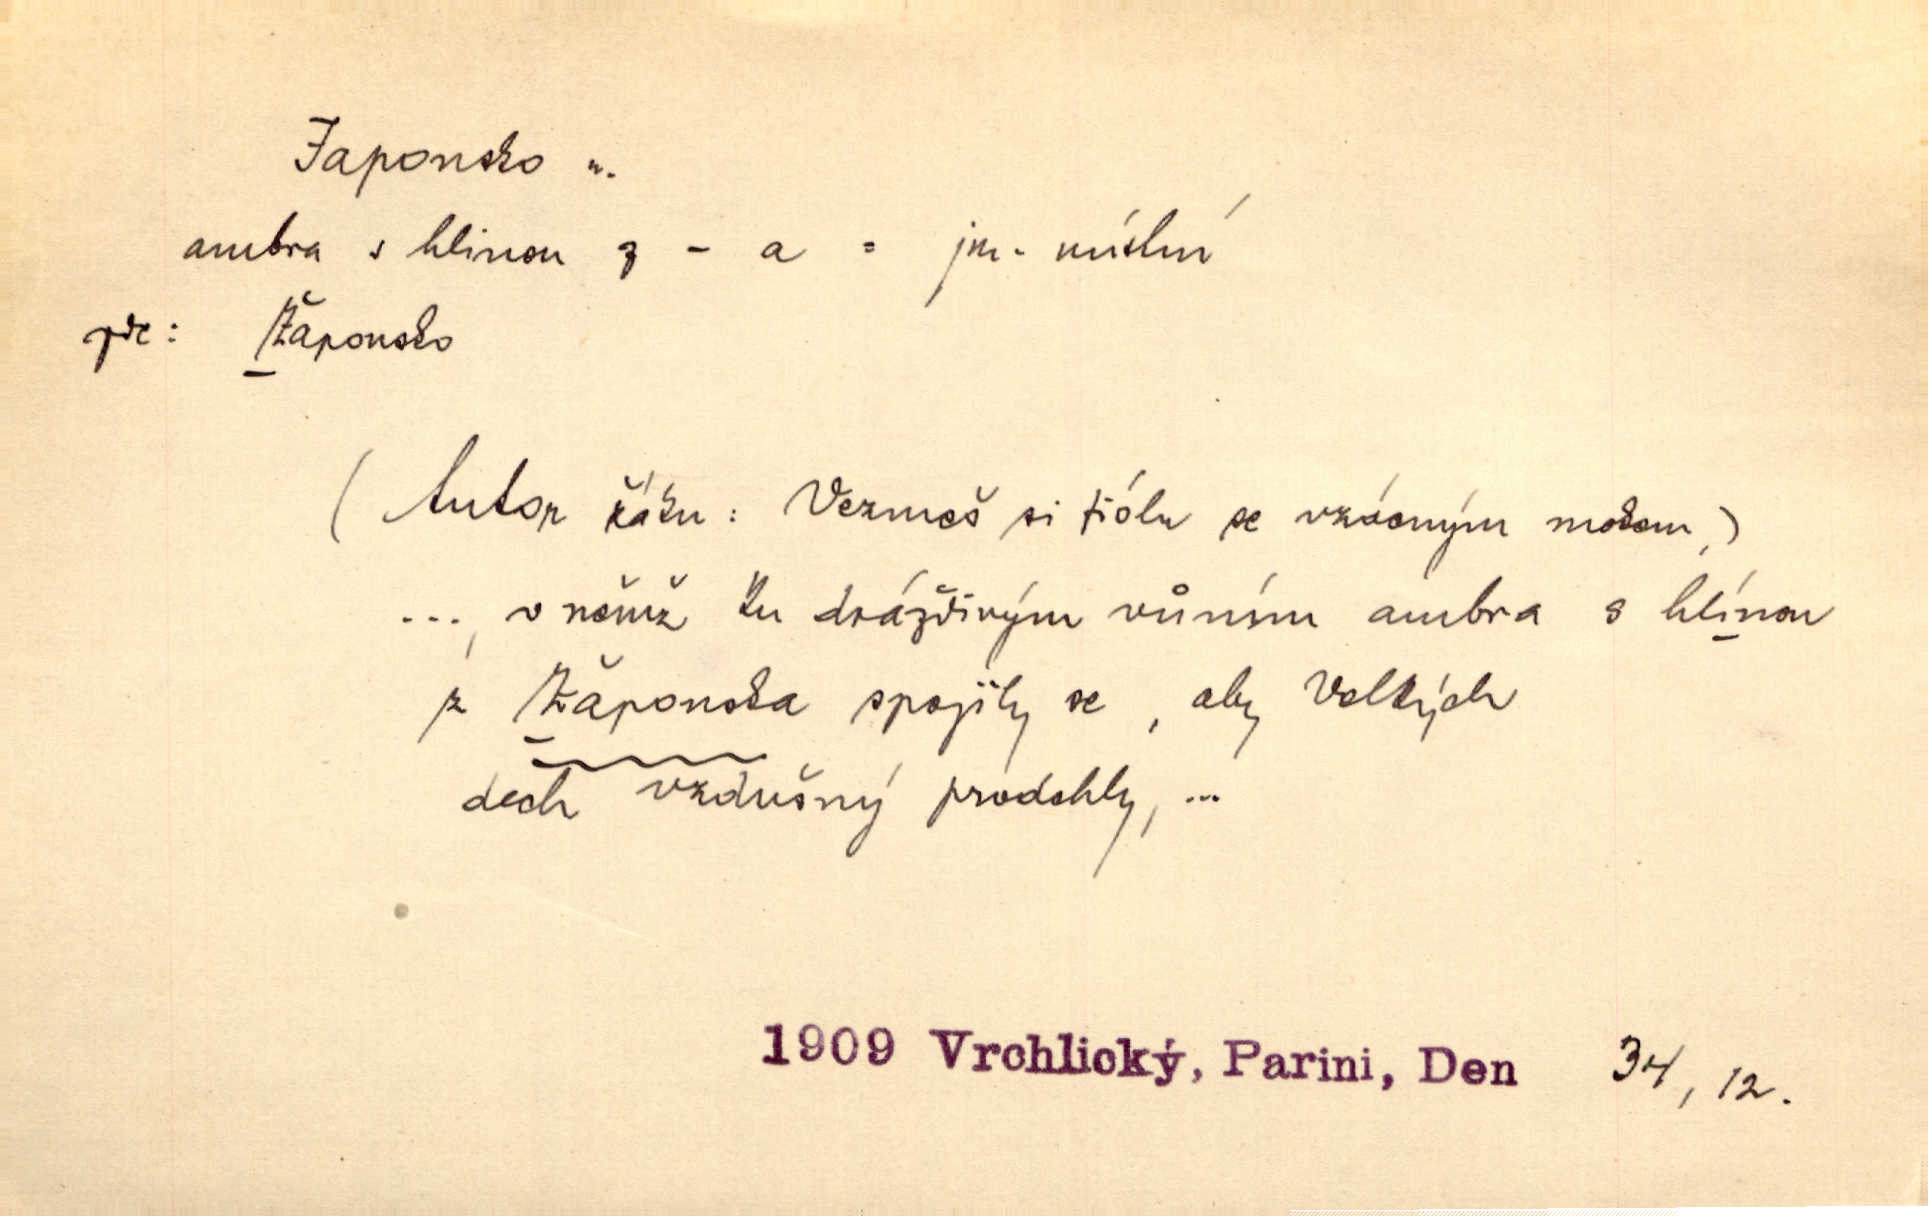 Japonsko n.
ambra s hlinou z - a = jm. místní
pse: Žaponsko
(Autor řádu: Vezmeš si fiólu se vzácným mokem,)
..., v němž tu dráždivým vůním ambra s hlínou
z Žaponska spojily se, aby Velkých
dech vzdušný prodchly, ...
1909 Vrchlický, Parini, Den 34, 12.